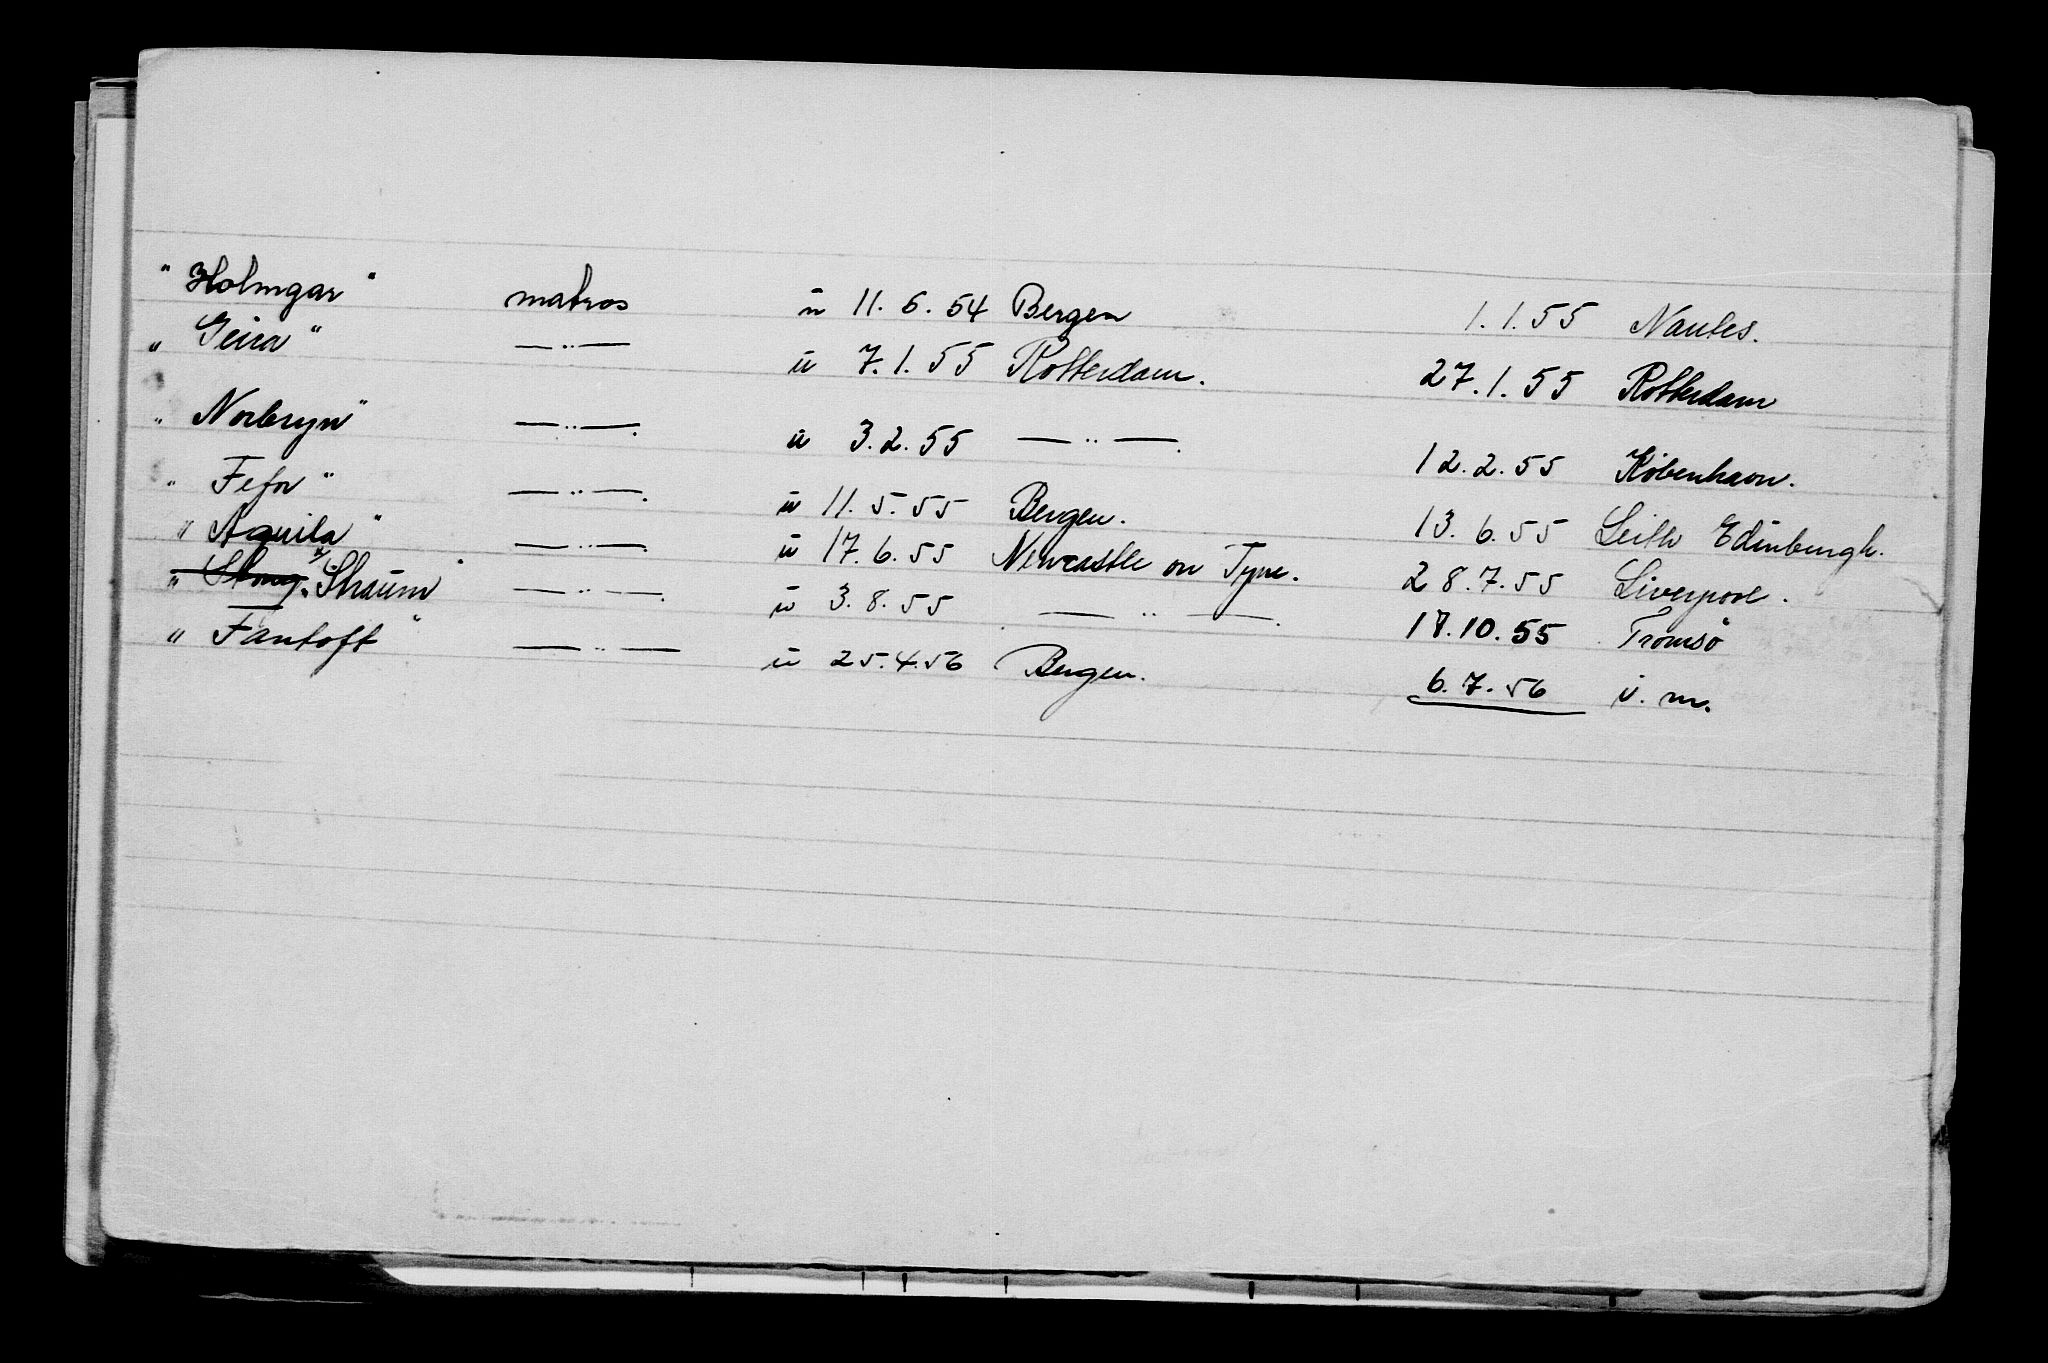 " Holmgar " matros ū 11. 6. 54 Bergen 1. 1. 55 Nantes.
" Geira " —..— ū 7. 1. 55 Rotterdam. 27. 1. 55 Rotterdam
" Norbryn " —..—. ū 3. 2. 55 —..—. 12. 2. 55 København.
" Fefor " —..—. ū 11. 5. 55 Bergen. 13. 6. 55 Leith Edinburgh.
" Aquila " —..—. ū 17. 6. 55 Newcastle on Tyne. 28. 7. 55 Liverpool.
" Straum " —..—. ū 3. 8. 55 —..—. 17. 10. 55 Tromsö
" Fantoft " —..— ū 25. 4. 56 Bergen. 6. 7. 56 i. m.